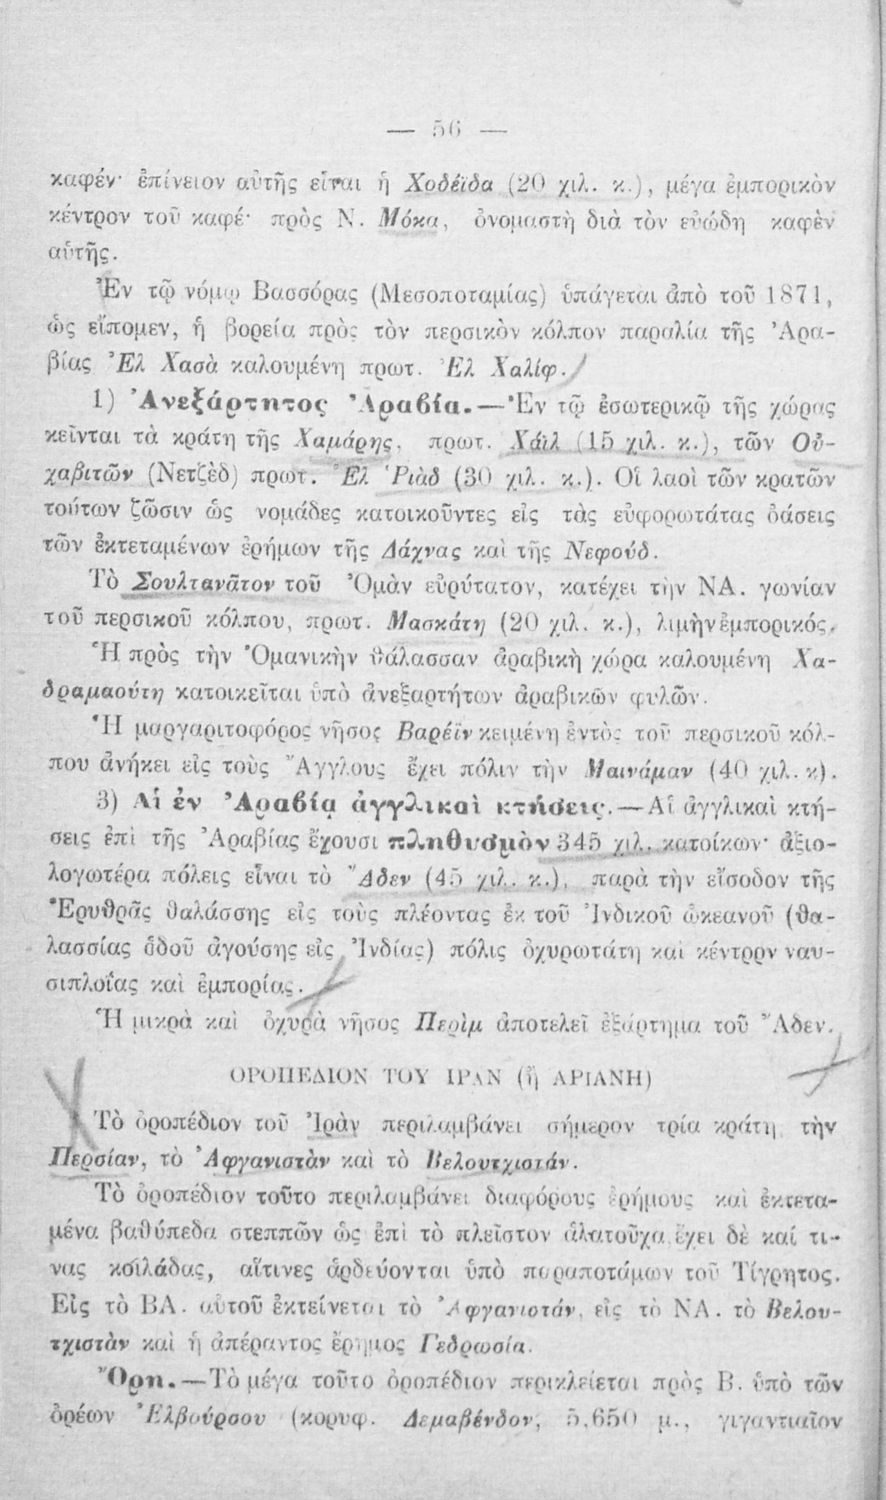 — 56 —
καφέν· ἐπίνειον αὐτῆς εἶναι ἡ Χοδέϊδα (20 χιλ. κ.), μέγα ἐμπορικὸν
κέντρον τοῦ καφέ· πρὸς Ν. Μόκα, ὀνομαστὴ διὰ τὸν εὐώδη καφὲν
αὐτῆς.
Ἐν τῷ νόμῳ Βασσόρας (Μεσοποταμίας) ὑπάγεται ἀπὸ τοῦ 1871,
ὡς εἴπομεν, ἡ βορεία πρὸς τὸν περσικὸν κόλπον παραλία τῆς Ἀρα-
βίας Ἐλ Χασὰ καλουμένη πρωτ. Ἐλ Χαλίφ.
1) Ἀνεξάρτητος Ἀραβία.—Ἐν τῷ ἐσωτερικῷ τῆς χώρας
κεῖνται τὰ κράτη τῆς Χαμάρης, πρωτ. Χάϊλ (15 χιλ. κ.), τῶν Οὐ-
χαβιτῶν (Νετζὲδ) πρωτ. Ἐλ Ῥιὰδ (30 χιλ. κ.). Οἱ λαοὶ τῶν κρατῶν
τούτων ζῶσιν ὡς νομάδες κατοικοῦντες εἰς τὰς εὐφορωτάτας ὀάσεις
τῶν ἐκτεταμένων ἐρήμων τῆς Δάχνας καὶ τῆς Νεφούδ.
Τὸ Σουλτανᾶτον τοῦ Ὀμὰν εὐρύτατον, κατέχει τὴν ΝΑ. γωνίαν
τοῦ περσικοῦ κόλπου, πρωτ. Μασκάτη (20 χιλ. κ.), λιμὴν ἐμπορικός.
Ἡ πρὸς τὴν Ὀμανικὴν θάλασσαν ἀραβικὴ χώρα καλουμένη Χα-
δραμαούτη κατοικεῖται ὑπὸ ἀνεξαρτήτων ἀραβικῶν φυλῶν.
Ἡ μαργαριτοφόρος νῆσος Βαρέϊν κειμένη ἐντὸς τοῦ περσικοῦ κόλ-
που ἀνήκει εἰς τοὺς Ἄγγλους ἔχει πόλιν τὴν Μαινάμαν (40 χιλ. κ).
3) Αἱ ἐν Ἀραβίᾳ ἀγγλικαὶ κτήσεις.—Αἱ ἀγγλικαὶ κτή-
σεις ἐπὶ τῆς Ἀραβίας ἔχουσι πληθυσμὸν 345 χιλ. κατοίκων· ἀξιο-
λογωτέρα πόλεις εἶναι τὸ Ἄδεν (45 χιλ. κ.), παρὰ τὴν εἴσοδον τῆς
Ἐρυθρᾶς θαλάσσης εἰς τοὺς πλέοντας ἐκ τοῦ Ἰνδικοῦ ὠκεανοῦ (θα-
λασσίας ὁδοῦ ἀγούσης εἰς Ἰνδίας) πόλις ὀχυρωτάτη καὶ κέντρον ναυ-
σιπλοΐας καὶ ἐμπορίας.
Ἡ μικρὰ καὶ ὀχυρὰ νῆσος Περὶμ ἀποτελεῖ ἐξάρτημα τοῦ Ἄδεν.
ΟΡΟΠΕΔΙΟΝ ΤΟΥ ΙΡΑΝ (ἢ ΑΡΙΑΝΗ)
Τὸ ὀροπέδιον τοῦ Ἰρὰν περιλαμβάνει σήμερον τρία κράτη τὴν
Περσίαν, τὸ Ἀφγανιστὰν καὶ τὸ Βελουτχιστάν.
Τὸ ὀροπέδιον τοῦτο περιλαμβάνει διαφόρους ἐρήμους καὶ ἐκτετα-
μένα βαθύπεδα στεππῶν ὡς ἐπὶ τὸ πλεῖστον ἁλατοῦχα ἔχει δὲ καί τι-
νας κοιλάδας, αἵτινες ἀρδεύονται ὑπὸ παραποτάμων τοῦ Τίγρητος.
Εἰς τὸ ΒΑ. αὐτοῦ ἐκτείνεται τὸ Ἀφγανιστάν, εἰς τὸ ΝΑ. τὸ Βελου-
τχιστὰν καὶ ἡ ἀπέραντος ἔρημος Γεδρωσία.
Ὄρη.—Τὸ μέγα τοῦτο ὀροπέδιον περικλείεται πρὸς Β. ὑπὸ τῶν
ὀρέων Ἐλβούρσου (κορυφ. Δεμαβένδον, 5,650 μ., γιγαντιαῖον